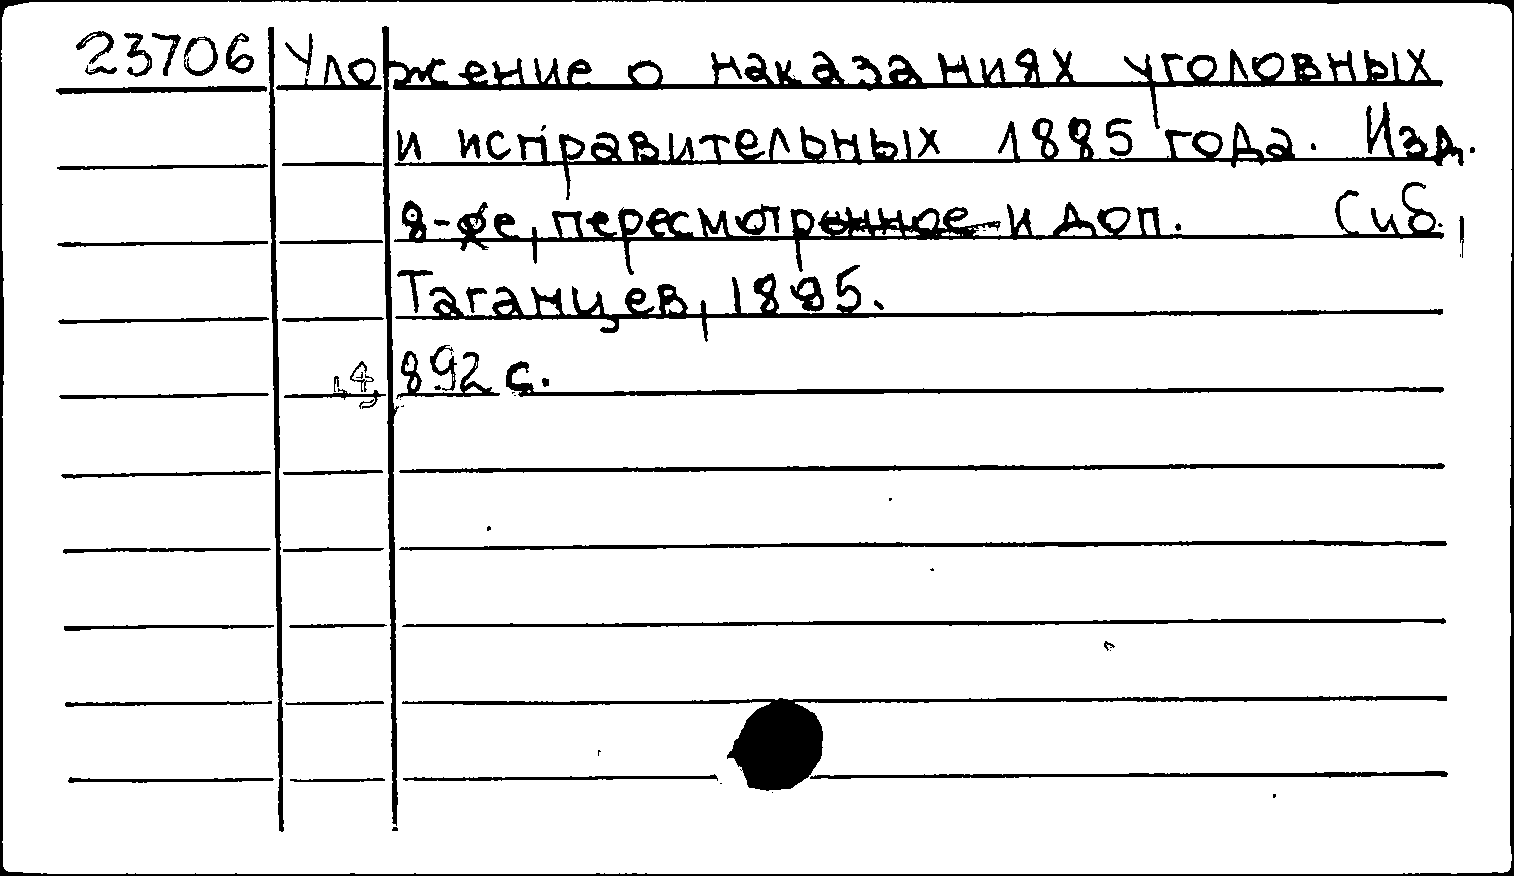 23706 Уложение о наказаниях уголовных
и исправительных 1885 года. Изд.
8-ое, пересмотренное и доп. Сиб.,
Таганцев, 1895.
892 с.